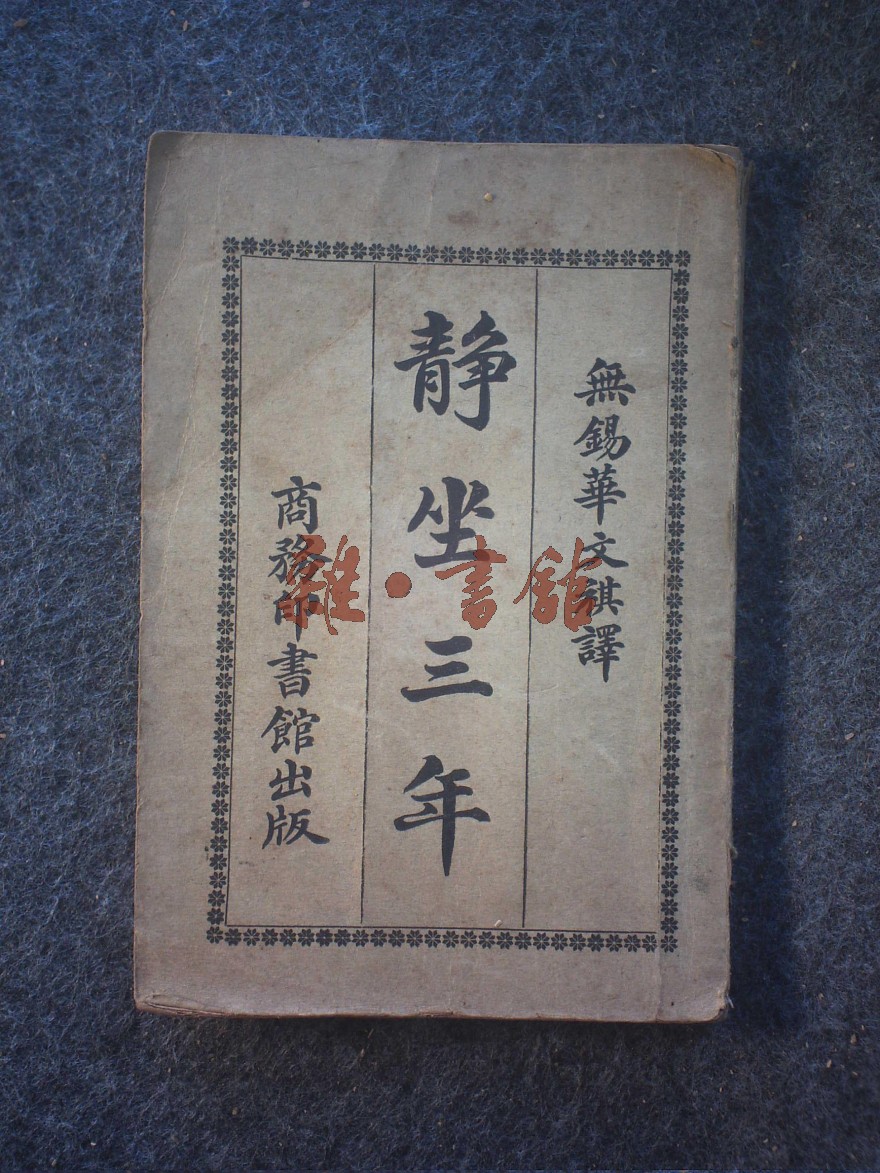 無錫華文祺譯
靜坐三年
商務印書館出版
雜·書館